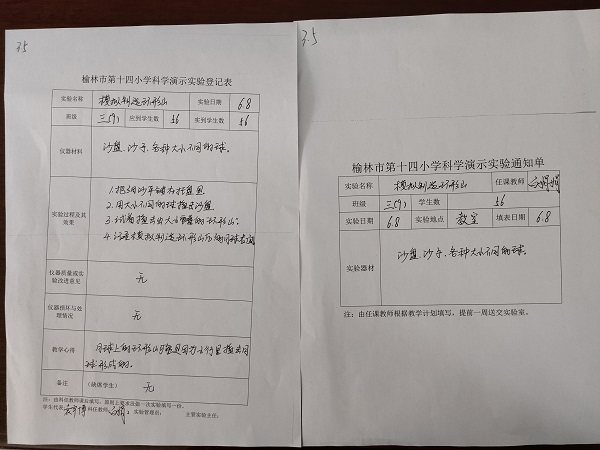 3.5
榆林市第十四小学科学演示实验登记表
实验名称 模拟制造环形山 实验日期 6.8
班级 三(9) 应到学生数 56 实到学生数 56
仪器材料 沙盘、沙子、各种大小不同的球。
实验过程及其效果
1.把细沙平铺在托盘里
2.用大小不同的球撞击沙盘
3.试着撞击出大小
4.记录模拟制造环形山
仪器质量或实验改进意见 无
仪器损坏与处理情况 无
教学心得 月球上的环形山
球形成的。
备注 (缺席学生) 无
注：由科任教师课后填写，原则上要求每做一次实验填写一份。
学生代表: 科任教师: 实验管理员: 主管实验主任:
3.5
榆林市第十四小学科学演示实验通知单
实验名称 模拟制造环形山 任课教师
班级 三(9) 学生数 56
实验日期 6.8 实验地点 教室 填表日期 6.8
实验器材 沙盘、沙子、各种大小不同的球。
注：由任课教师根据教学计划填写，提前一周送交实验室。